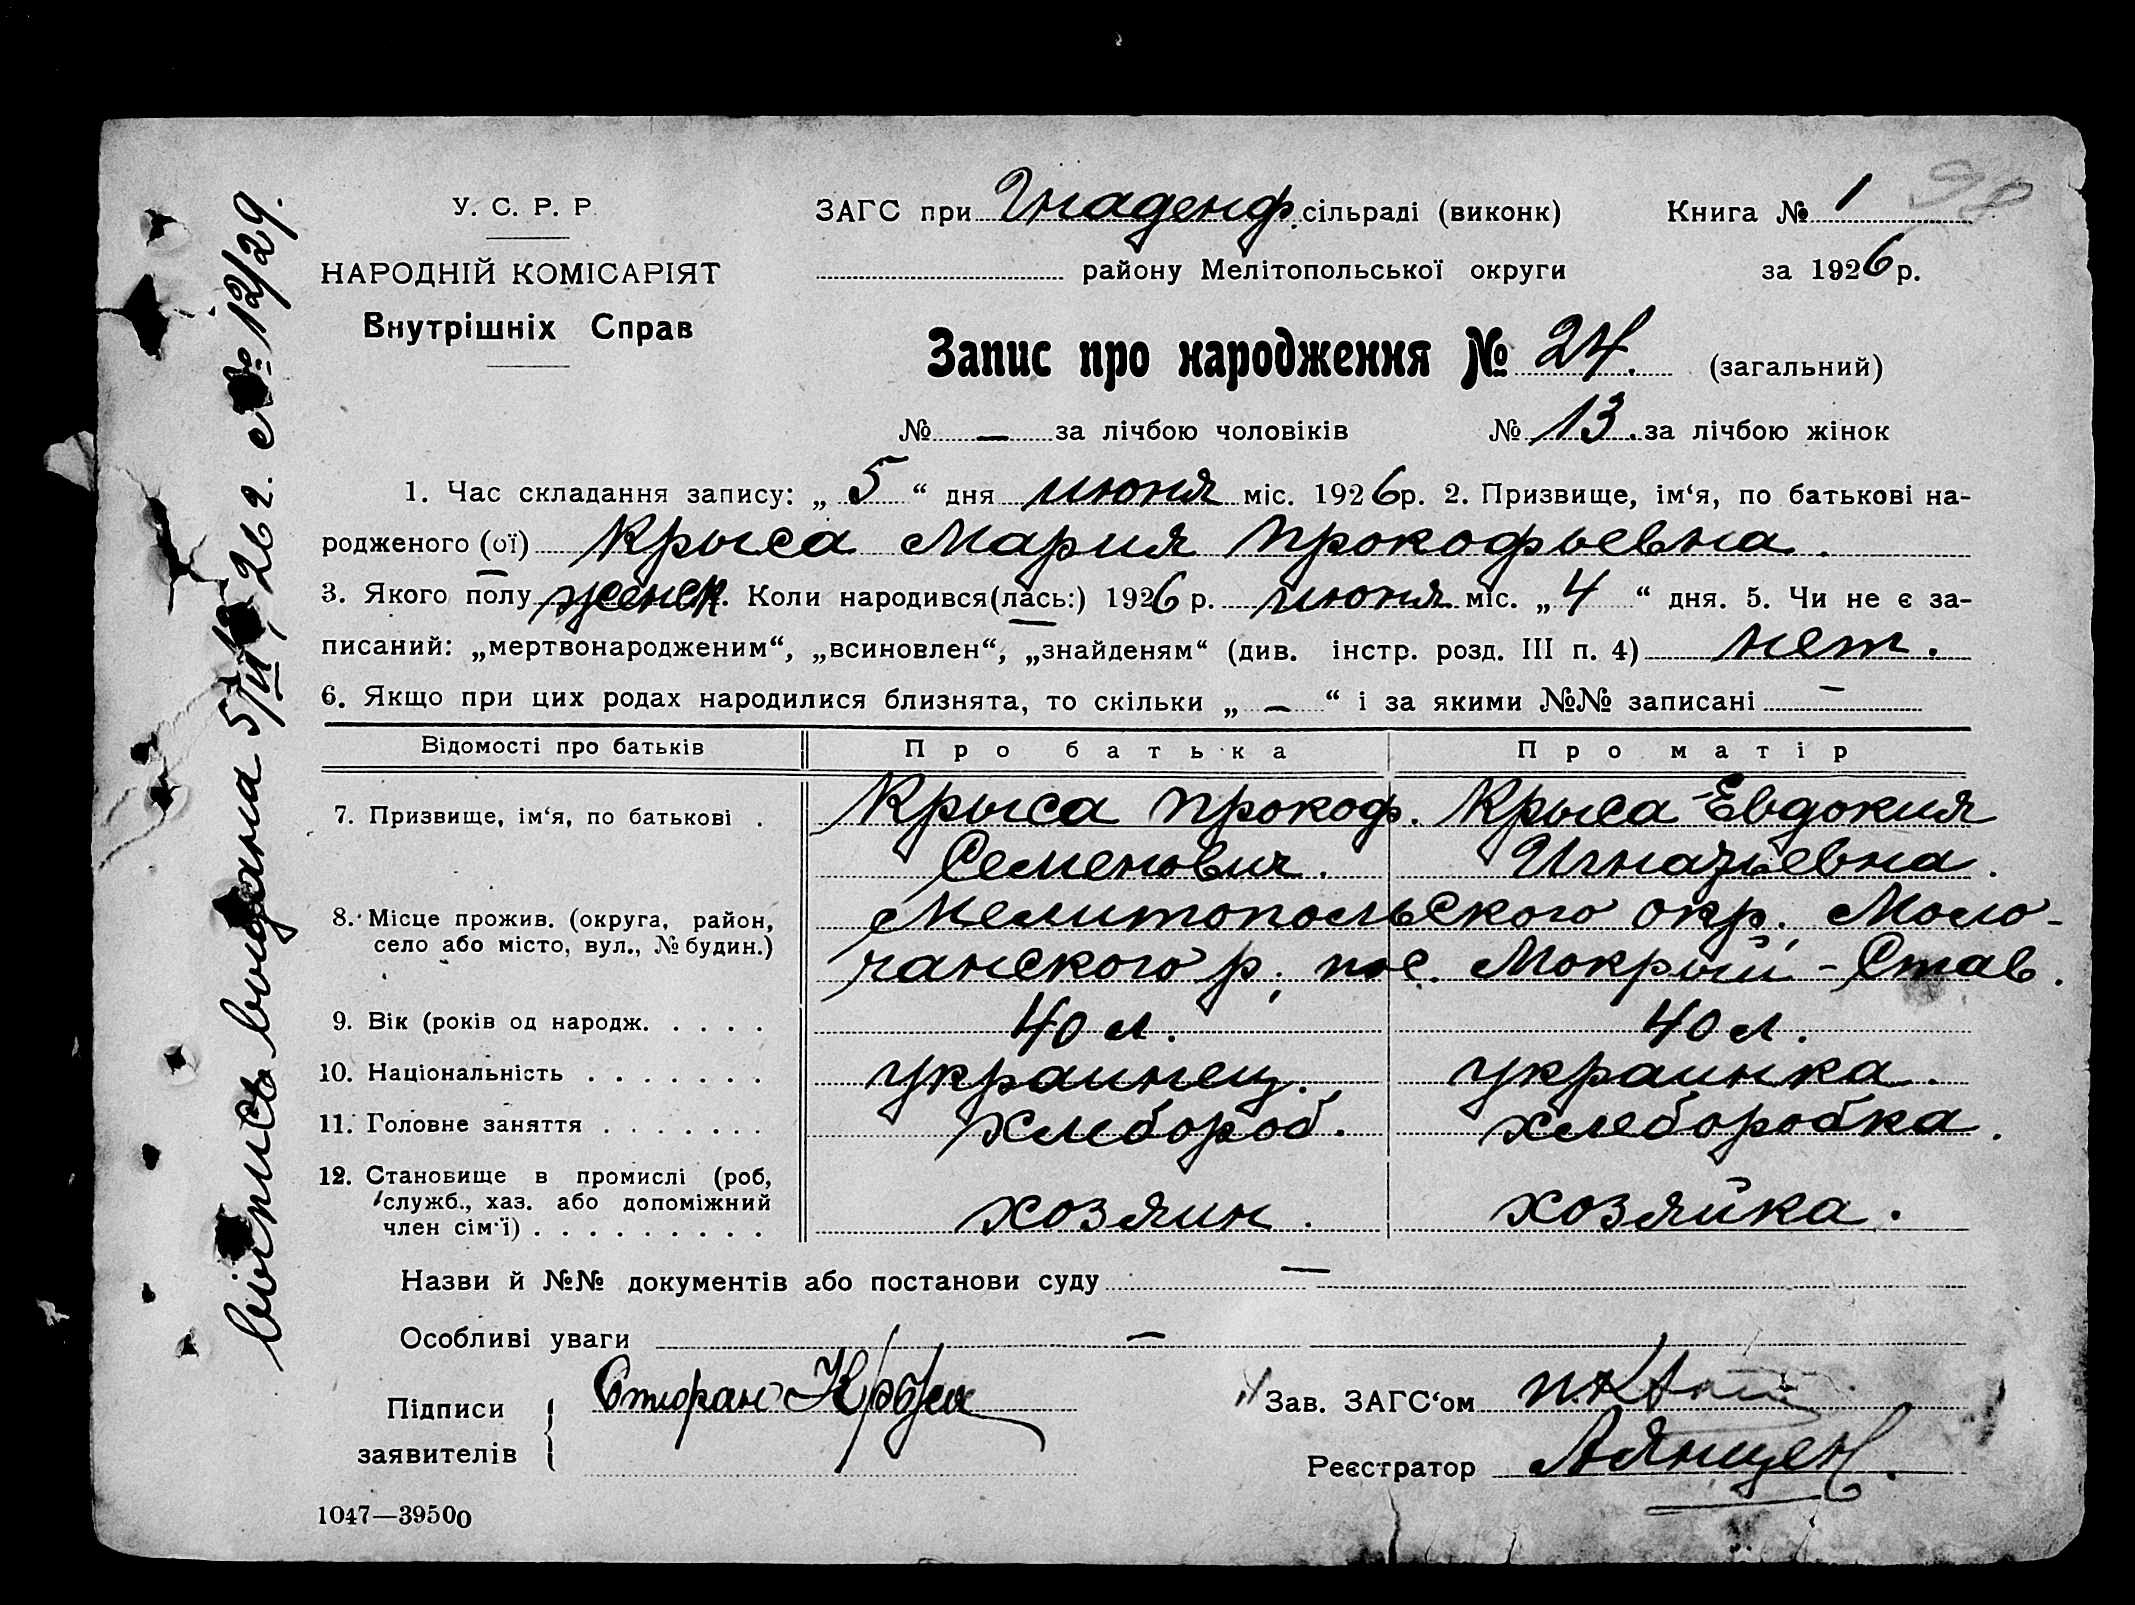 У. С. Р. Р.
НАРОДНІЙ КОМІСАРІЯТ
Внутрішніх Справ
ЗАГС при Гнаденф. сільраді (виконк) Книга № 1 98
району Мелітопольської округи за 1926 р.
Запис про народження № 24. (загальний)
№ — за лічбою чоловіків № 13. за лічбою жінок
1. Час складання запису: „ 5 “ дня июня міс. 1926 р. 2. Призвище, ім‘я, по батькові на-
родженого (ої) Крыса Мария Прокофьевна.
3. Якого полу женск. Коли народився(лась:) 1926 р. июня міс. „ 4 “ дня. 5. Чи не є за-
писаний: „мертвонародженим“, „всиновлен“, „знайденям“ (див. інстр. розд. III п. 4) нет.
6. Якщо при цих родах народилися близнята, то скільки „ — “ і за якими №№ записані —
Відомості про батьків Про батька Про матір
7. Призвище, ім‘я, по батькові . Крыса Прокоф. Крыса Евдокия
Семенович. Игнатьевна.
8. Місце прожив. (округа, район, Мелитопольского окр. Моло-
село або місто, вул., № будин.) чанского р. пос. Мокрый-Став.
9. Вік (років од народж. . . . . 40 л. 40 л.
10. Національність . . . . . . . украинец. украинка.
11. Головне заняття . . . . . . . хлебороб. хлеборобка.
12. Становище в промислі (роб,
служб., хаз. або допоміжний хозяин. хозяйка.
член сім‘ї) . . . . . . . . .
Назви й №№ документів або постанови суду —
Особливі уваги —
Підписи
заявителів
Зав. ЗАГС‘ом
Реєстратор
1047—39500
выдана 5/VI 26 г. № 12/29.